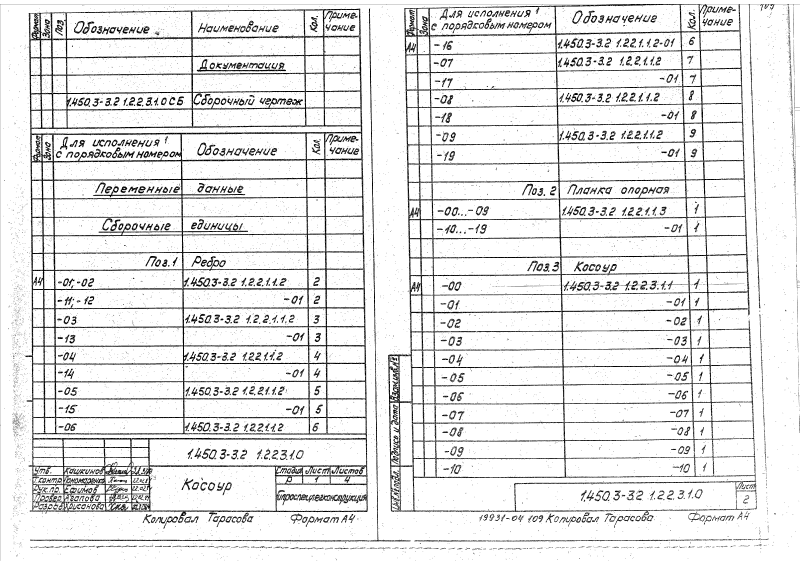 Формат Зона Поз. Обозначение Наименование Кол. Примечание
Документация
1.450.3-3.2 1.2.2.3.1.0 СБ Сборочный чертеж
Формат Зона Для исполнения с порядковым номером Обозначение Кол. Примечание
Переменные данные
Сборочные единицы
Поз.1 Ребро
А4 -01;-02 1.450.3-3.2 1.2.2.1.1.2 2
-11;-12 -01 2
-03 1.450.3-3.2 1.2.2.1.1.2 3
-13 -01 3
-04 1.450.3-3.2 1.2.2.1.1.2 4
-14 -01 4
-05 1.450.3-3.2 1.2.2.1.1.2 5
-15 -01 5
-06 1.450.3-3.2 1.2.2.1.1.2 6
1.450.3-3.2 1.2.2.3.1.0
Утв. Кашкинов
Н.контр. Пономаренко
Рук.пр. Ефимов
Провер. Агапова
Разраб. Хрисанова
Косоур
Стадия Лист Листов
Р 1 4
Копировал Тарасова Формат А4
Формат Зона Для исполнения с порядковым номером Обозначение Кол. Примечание
А4 -16 1.450.3-3.2 1.2.2.1.1.2-01 6
-07 1.450.3-3.2 1.2.2.1.1.2 7
-17 -01 7
-08 1.450.3-3.2 1.2.2.1.1.2 8
-18 -01 8
-09 1.450.3-3.2 1.2.2.1.1.2 9
-19 -01 9
Поз. 2 Планка опорная
А4 -00...-09 1.450.3-3.2 1.2.2.1.1.3 1
-10...-19 -01 1
Поз.3 Косоур
А4 -00 1.450.3-3.2 1.2.2.3.1.1 1
-01 -01 1
-02 -02 1
-03 -03 1
-04 -04 1
-05 -05 1
-06 -06 1
-07 -07 1
-08 -08 1
-09 -09 1
-10 -10 1
Инв.№ подл. Подпись и дата Взам.инв.№
1.450.3-3.2 1.2.2.3.1.0 Лист 2
19931-04 109 Копировал Тарасова Формат А4